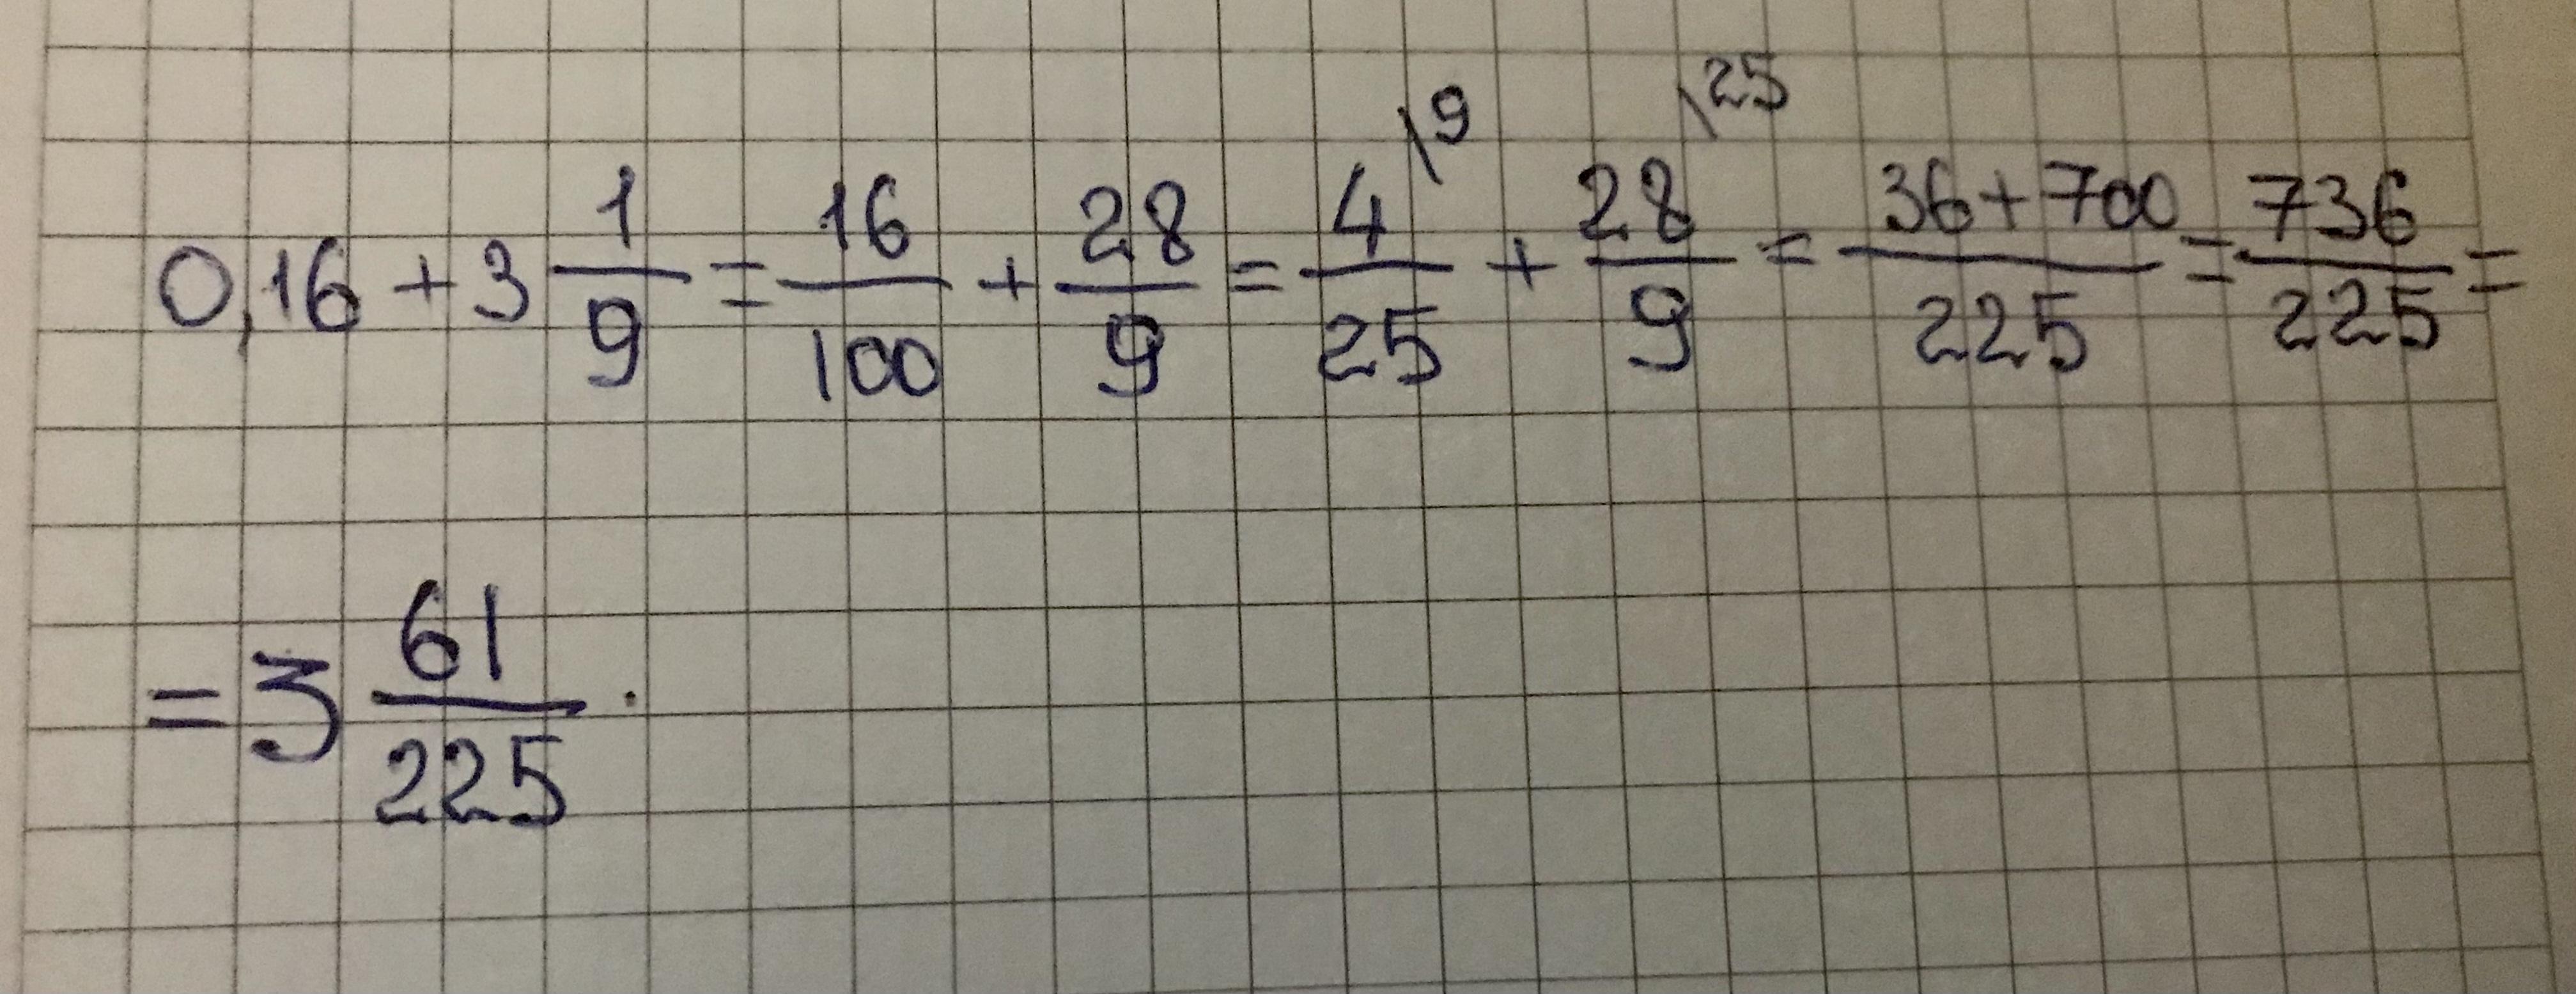 0,16 + 3 1/9 = 16/100 + 28/9 = 4/25 \9 + 28/9 \25 = 36+700/225 = 736/225 =
= 3 61/225 .